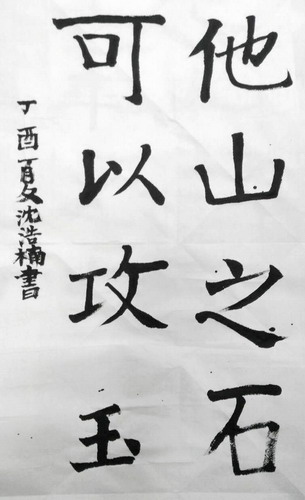 他山之石
可以攻玉
丁酉夏沈浩楠書